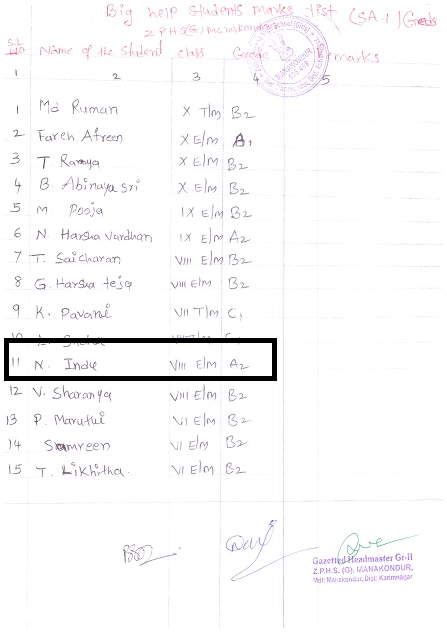 Big help students Marks list (SA-1) Grads
Z P H S (G) Manakondur
S.L No Name of the Student class Grade Remarks
1 2 3 4 5
1 Md Ruman X T/m B2
2 Fareh Afreen X E/m A1
3 T. Ramya X E/m B2
4 B. Abinaya sri X E/m B2
5 M Pooja IX E/m B2
6 N. Harsha vardhan IX E/m A2
7 T. Saicharan VIII E/m B2
8 G. Harsha teja VIII E/m B2
9 K. Pavani VII T/m C1
10
11 N. Indu VIII E/m A2
12 V. Sharanya VIII E/m B2
13 P. Maruthi VI E/m B2
14 Samreen VI E/m B2
15 T. Likhitha. VI E/m B2
Gazetted Headmaster Gr-II
Z.P.H.S. (G). MANAKONDUR,
Mdl: Manakondur, Dist: Karimnagar